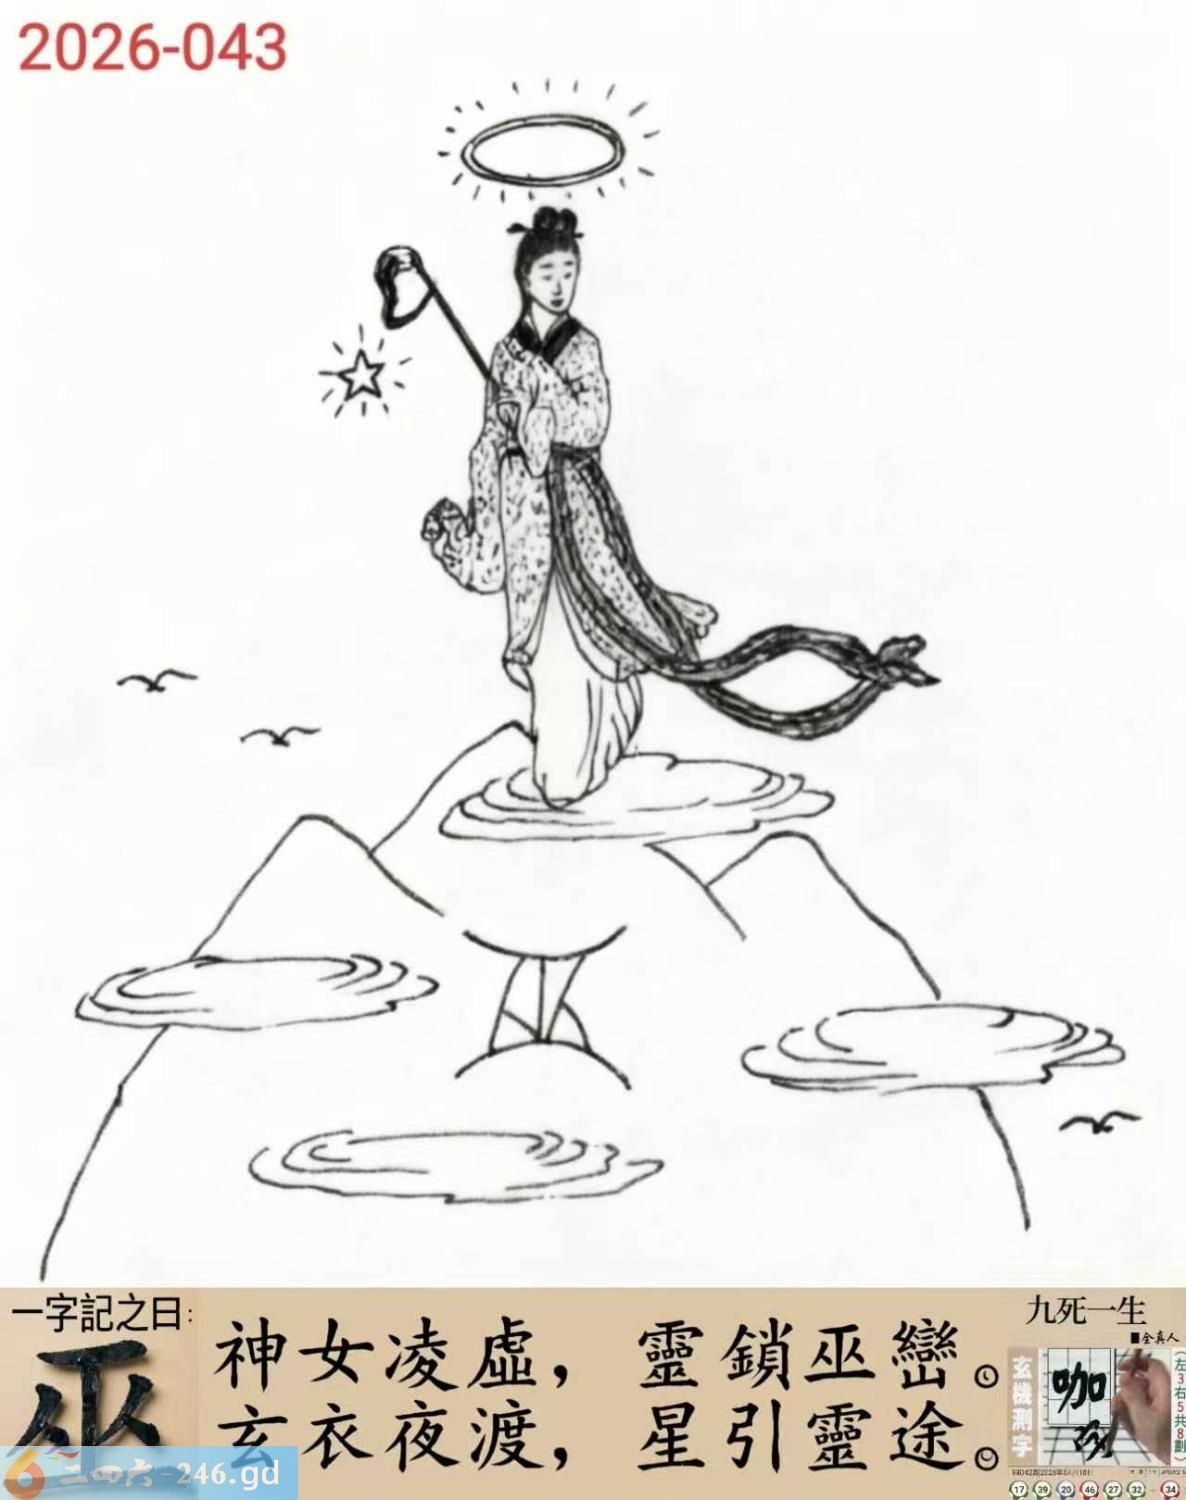 2026-043
一字記之曰:
巫
神女凌虛，靈鎖巫巒。
玄衣夜渡，星引靈途。
九死一生
■全真人
玄機測字
咖
（左3右5共8劃）
二四六-246.gd
17 39 20 46 27 32 34